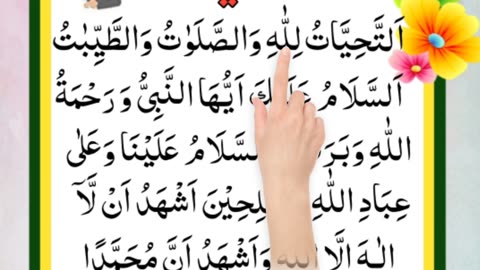 اَلتَّحِيَّاتُ لِلّٰهِ وَالصَّلَوٰتُ وَالطَّيِّبٰتُ
اَلسَّلَامُ اَيُّهَا النَّبِىُّ وَرَحْمَةُ
اللّٰهِ السَّلَامُ عَلَيْنَا وَعَلٰى
عِبَادِ اللّٰهِ اَشْهَدُ اَنْ لَّآ
اِلٰهَ اِلَّا اللّٰهُ وَاَشْهَدُ اَنَّ مُحَمَّدًا